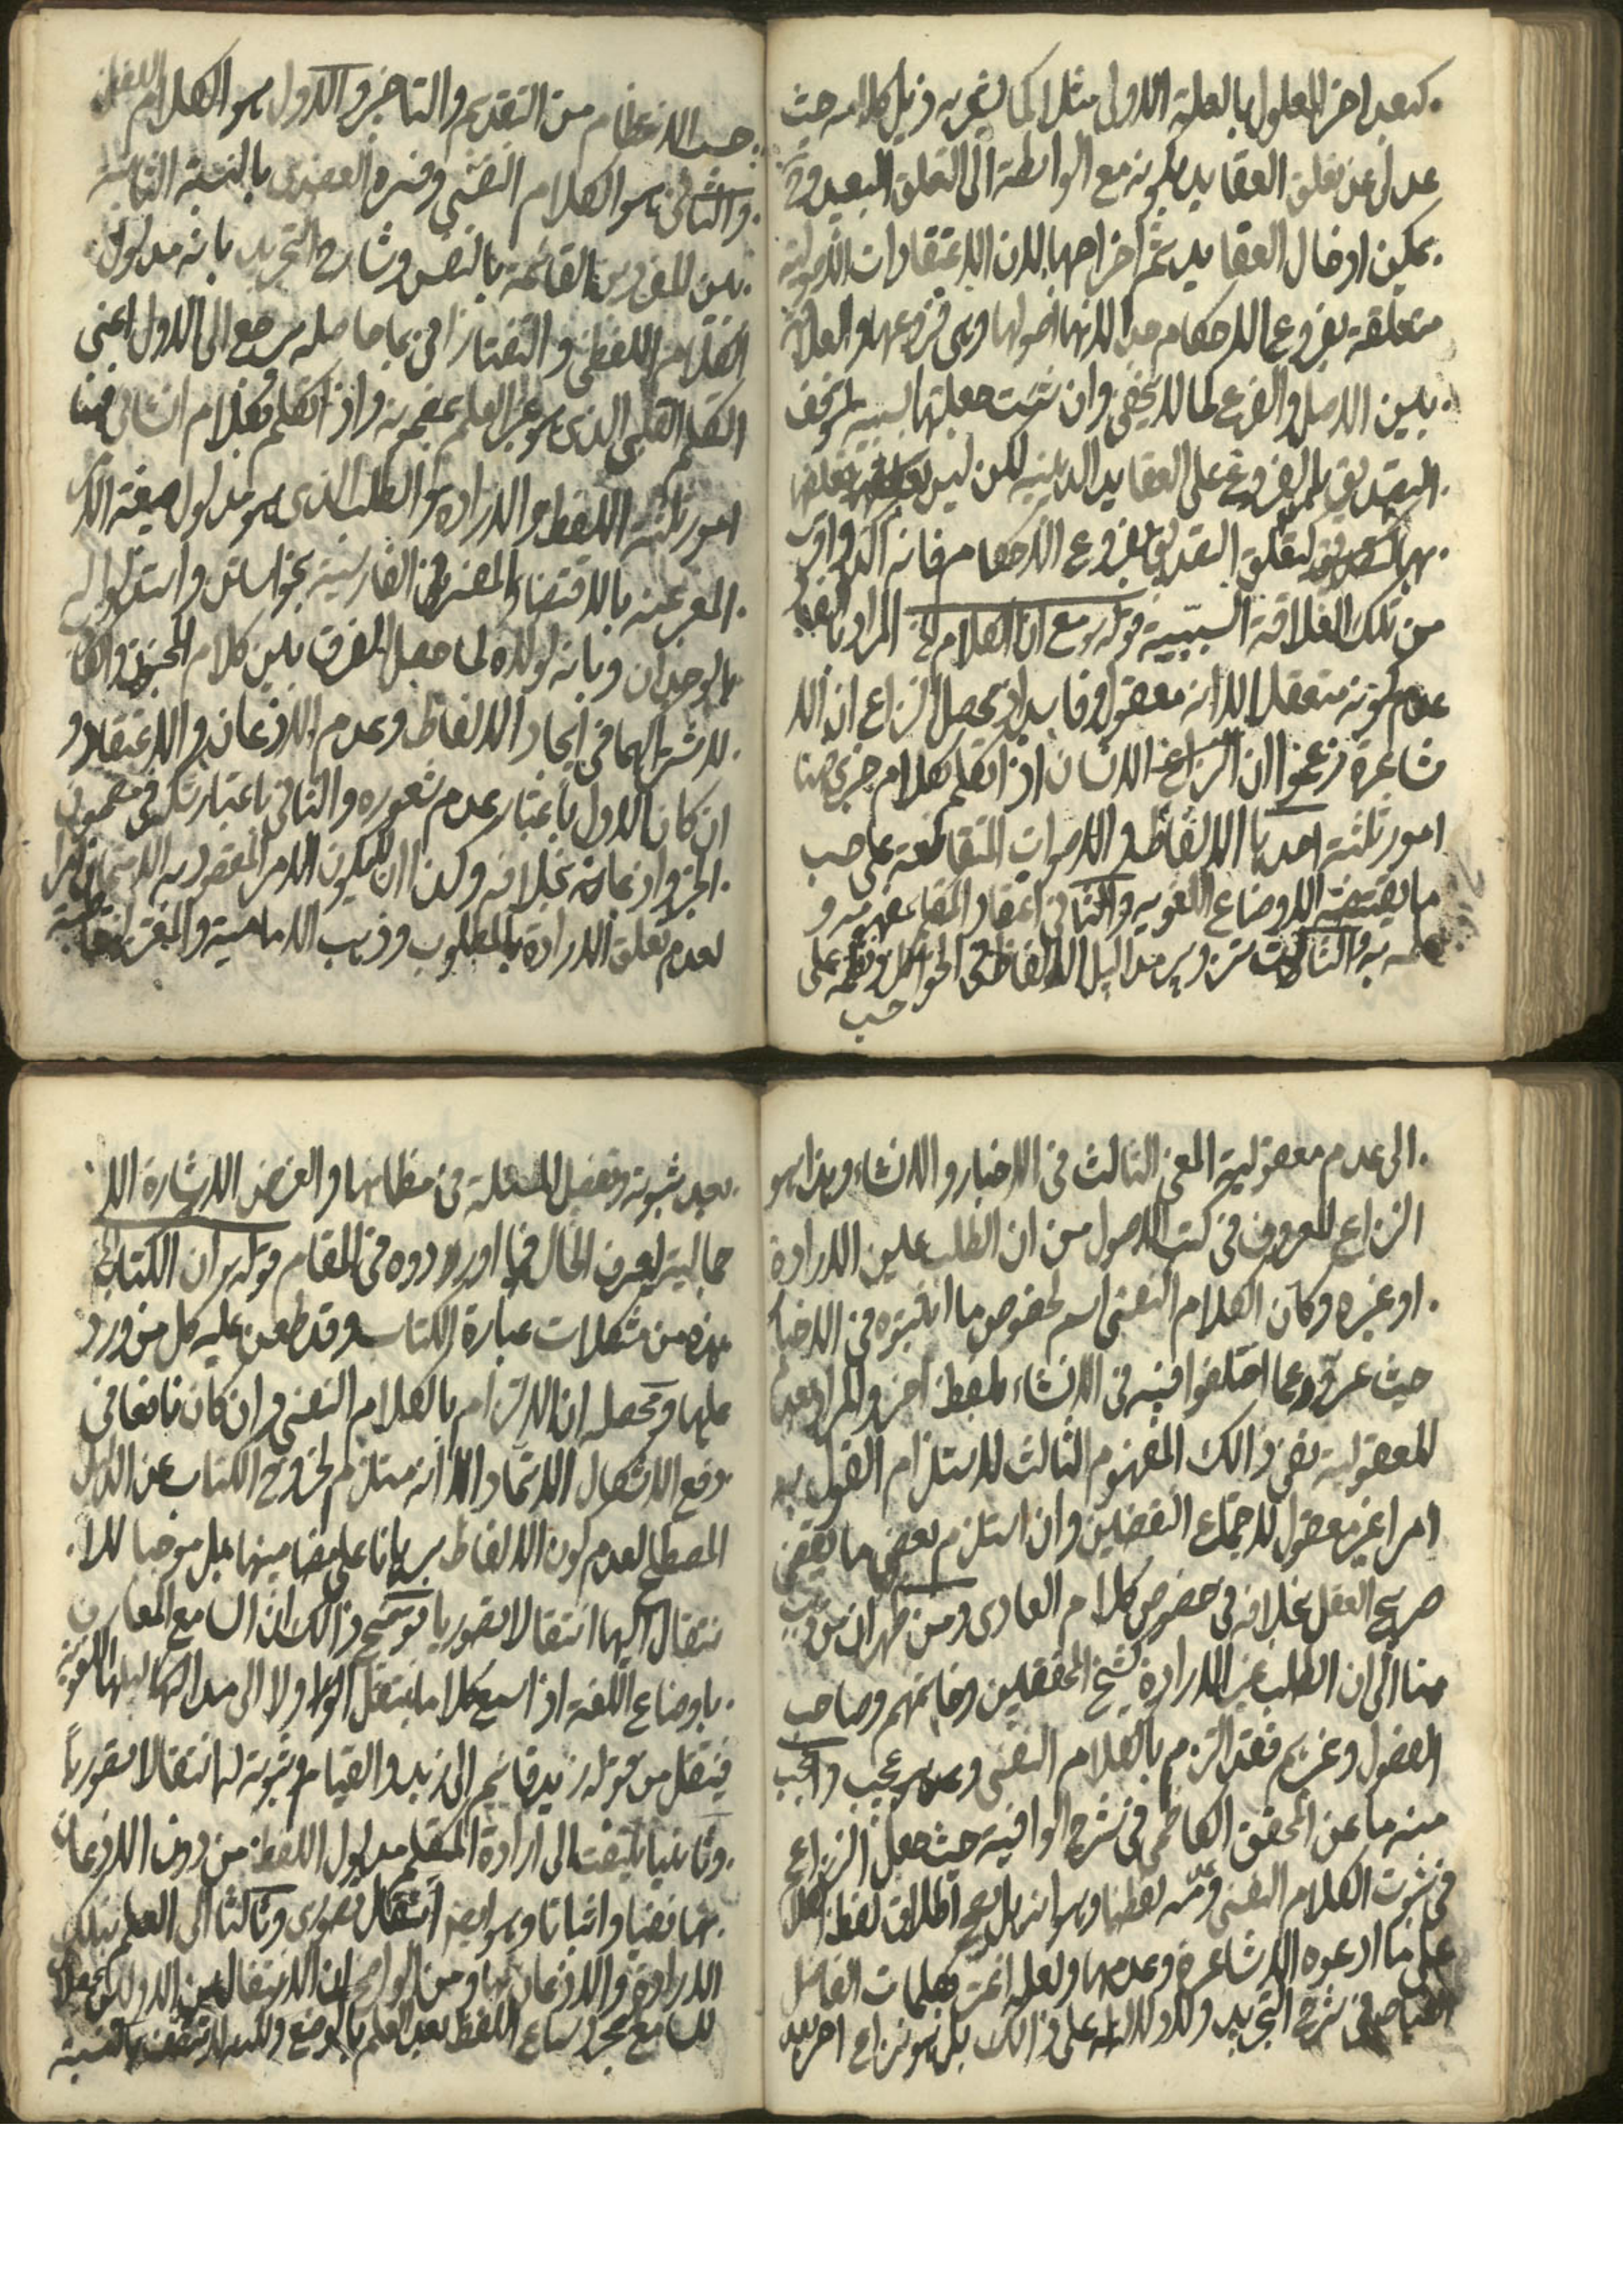 كبعد اخر المعلول بالعلة الاولى مثلا كما يشعر به ذيل كلامه حيث
عدل عن تعلق العقايد بكونه مع الواسطة الى التعلق البعيد و
يمكن ادخال العقايد ثم اخراجها لان الاعتقادات الاصولية
متعلقة بفروع الاحكام جدا لانها اصولها وهى فروعها والعلاقة
بين الاصل والفرع كما لا يخفى وان شئت جعلتها سببية لتوقف
التصديق بالفروع على العقايد الدينية لكن ليس تعلقها
بها كتعلق التصديق بفروع الاحكام فانه آكد واقرب
من تلك العلاقة السببية قوله مع ان الكلام الخ المراد
عدم كونه متعقلا لا انه معقول فاسد اذ تحصيل النزاع ان الا
شاعرة زعموا ان الانسان اذا تكلم بكلام خبرى هنا
امور ثلثة احدها الالفاظ والاصوات المتقاطعة على حسب
ما يقتضيه الاوضاع اللغويه والثانى اعتقاد المتكلم بمفهومه و
علمه به والثالث تزوير مداليل الالفاظ فى الخواطر ونظمه على
حسب
حسب الانتظام من التقديم والتاخير والاول هو الكلام اللفظى
والثانى هو الكلام النفسى وفسره العضدى بالنسبة الثابتة
بين المفردين القائمة بالنفس وشارح التجريد بانه مدلول
الكلام اللفظى والتفتازانى بما حاصله يرجع الى الاول اعنى
التكلم القلبى الذى هو غير العلم بمضمونه واذا تكلم بكلام انشائى فهنا
امور ثلثة اللفظ والارادة والطلب الذى هو مدلول صيغة الامر
المعبر عنه بالاقتضاء والمفسر فى الفارسية بخواستن واستدلوا له
بالوجدان وبانه لولاه لما حصل الفرق بين كلام المخبر والشاك
لاشتراكهما فى ايجاد الالفاظ وعدم الاذعان والاعتقاد و
ان كان الاول باعتبار عدم شعوره والثانى باعتبار شكه فى مضمون
الخبر واذعانه بخلافه وكذا ان لا يكون الامر المقصود به الامتحان امرا
لعدم تعلق الارادة بالمطلوب وذهب الامامية والمعتزلة قاطبة
الى عدم معقولية المعنى الثالث فى الاخبار والانشاء وهذا هو
النزاع المعروف فى كتب الاصول من ان الطلب عين الارادة
او غيره وكان الكلام النفسى اسم لخصوص ما اثبتوه فى الاخبار
حيث عبروا عما اختلفوا فيه فى الانشاء بلفظ اخر والمراد بعدم
المعقولية نفى ذلك المفهوم الثالث لاستلزام القول به
امرا غير معقول لاجتماع النقيضين وان استلزم بعض ما يقتضى
صريح العقل بخلافه فى خصوص كلام العادى ومن ظهر ان من ذهب
منا الى ان الطلب غير الارادة كشيخ المحققين وخاتمهم وصاحب
الفصول وغيرهم فقد التزم بالكلام النفسى وهو عجيب واعجب
منه ما عن المحقق الكاظمى فى شرح الوافية حيث جعل النزاع
فى ثبوت الكلام النفسى وعدمه لفظيا وهو انه هل يصح اطلاق لفظ الكلام
على ما ادعوه الاشاعرة وعدمها ولعله اغتر بكلمات الفاضل
فى شرح التجريد ولا دلالة له على ذلك بل هو نزاع اخر بعد
بعد ثبوته وتفصيل المسئلة فى مظانها والغرض الاشارة الا
جمالية ليعرف الحال فيما اوردوه فى المقام قوله ان الكتاب الخ
هذه من مشكلات عبارة الكتاب وقد طعن عليه كل من ورد
عليها ومحصله ان الالتزام بالكلام النفسى وان كان نافعا فى
دفع الاشكال الاتحاد الا انه مستلزم لخروج الكتاب عن الدليل
المصطلح لعدم كون الالفاظ برهانا على مضامينها بل موجبا للا
نتقال اليها انتقالا تصوريا توضيح ذلك ان السامع العارف
باوضاع اللغة اذا سمع كلاما ينتقل اولا الى مداليلها اللغوية
فينتقل من قوله زيد قائم الى زيد والقيام وثبوته له انتقالا تصوريا
وثانيا يلتفت الى ارادة المتكلم مدلول اللفظ من دون الاذعان
بها نفيا واثباتا وهو ايضا انتقال تصورى وثالثا الى العلم بتلك
الارادة والاذعان بها ومن الواضح ان الانتقالين الاولين يحصلان
للسامع بمجرد سماع اللفظ بعد العلم بالوضع